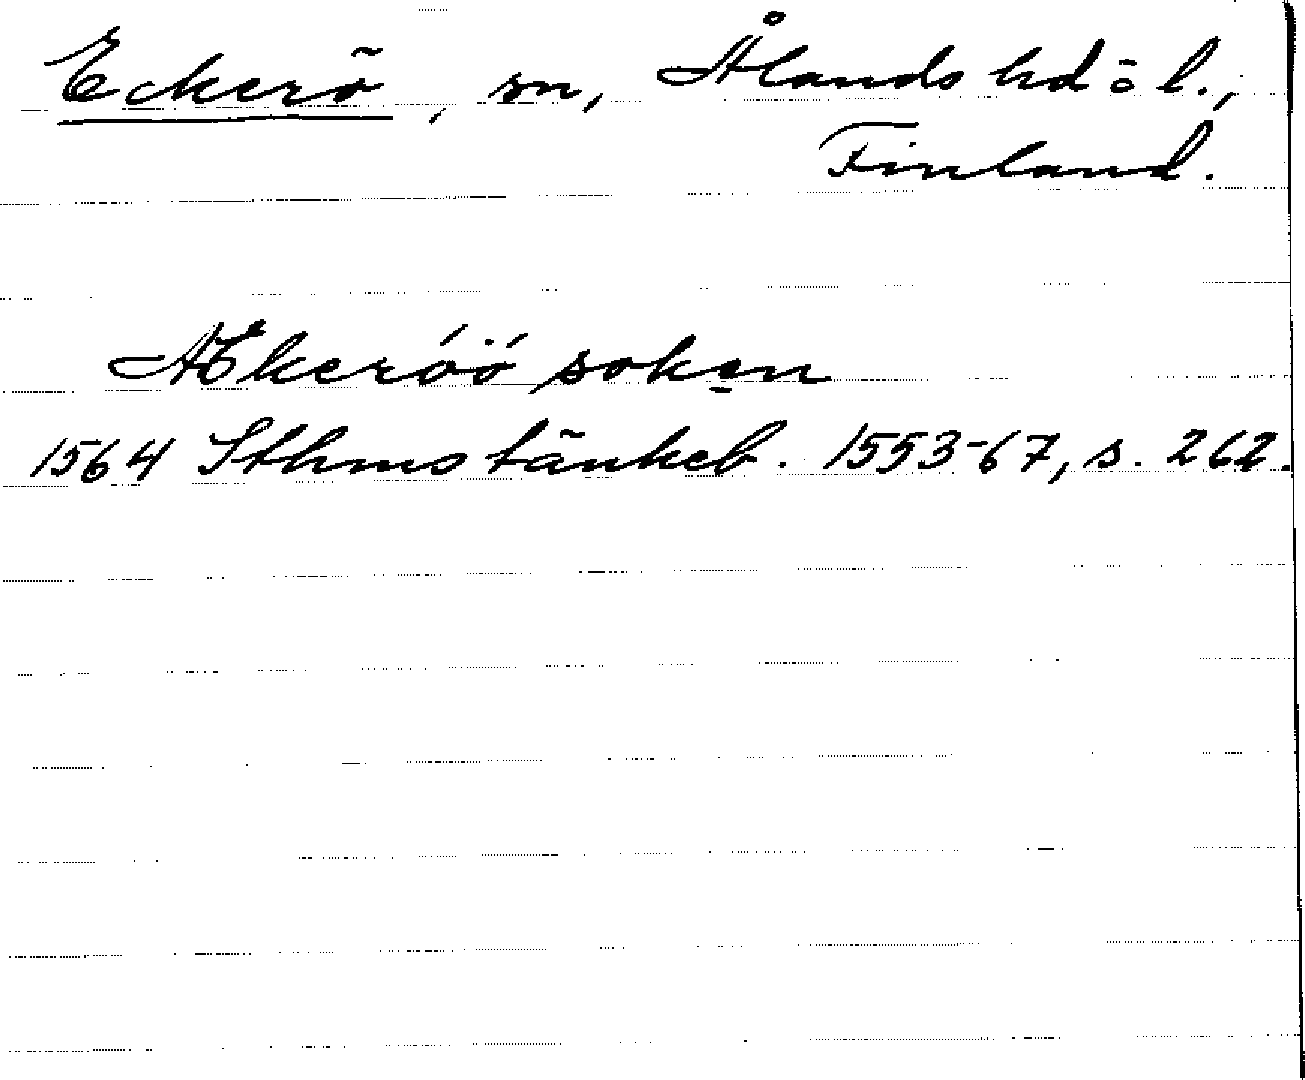 Eckerö, sn, Ålands hd o l.,
Finland.
Ækeróö soken
1564 Sthms tänkeb. 1553-67, s. 262.